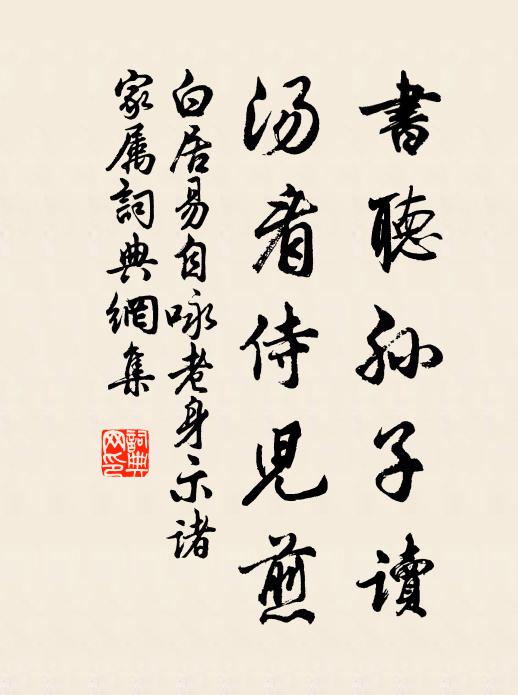 書聽孙子讀
汤看侍児煎
白居易自咏老身示诸
家属詞典網集
詞典网印